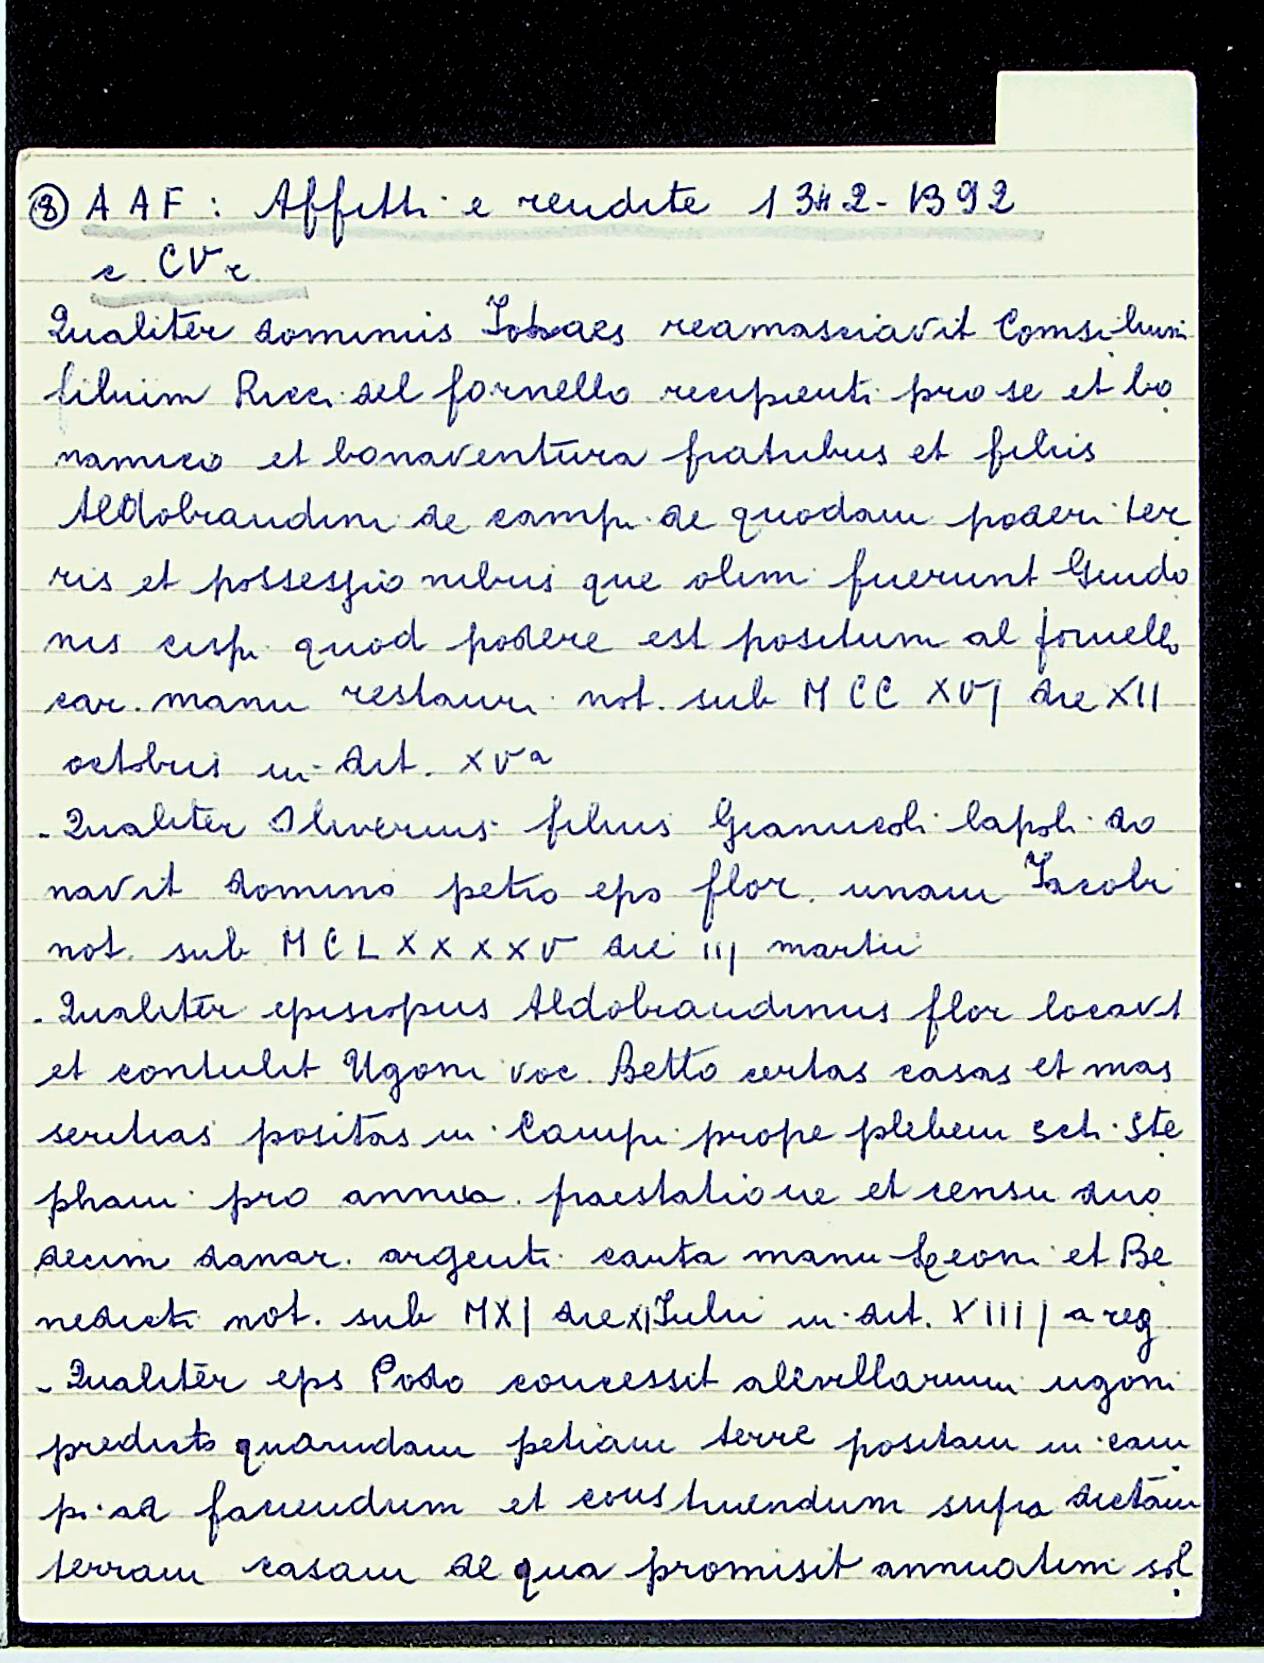 ⑧ AAF: Affitti e rendite 1342-1392
c CV r
Qualiter dominus Johaes reamasciavit Consilium
filium Ricci del fornello recipienti pro se et bo
namico et bonaventura fratribus et filiis
Aldobrandini de campi de quodam poderi ter
ris et possessionibus que olim fuerunt Guido
nis cispi quod podere est positum al fornello
car. manu restauri not. sub MCCXVI die XII
octobris in dit. XVa
- Qualiter Oliverius filius Gianucoli lapoli do
navit domino petro epo flor. unam Jacobi
not. sub MCLXXXXV die III martii
- Qualiter episcopus Aldobrandinus flor locavit
et contulit Ugoni voc. Betto certas casas et mas
seritias positas in Campi prope plebem scti Ste
phani pro annua praestatione et censu duo
decim danar. argenti carta manu Leoni et Be
nedicti not. sub MXI die XI Julii in dit. XIIII a reg
- Qualiter eps Podo concessit alivellarium ugoni
predicto quamdam petiam terre positam in cam
pi ad faciendum et construendum supra dictam
terram casam de qua promisit annuatim sol